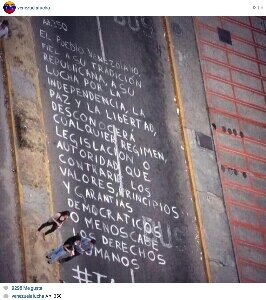 venezuelalucha
Art 350
El Pueblo Venezolano,
fiel a su tradición
republicana, a su
lucha por la
independencia, la
paz y la libertad,
desconocerá
cualquier régimen,
legislación o
autoridad que
contraríe los
valores, principios
y garantías
democráticos
o menoscabe
los derechos
humanos
BUS
9298 Me gusta
venezuelalucha Art 350